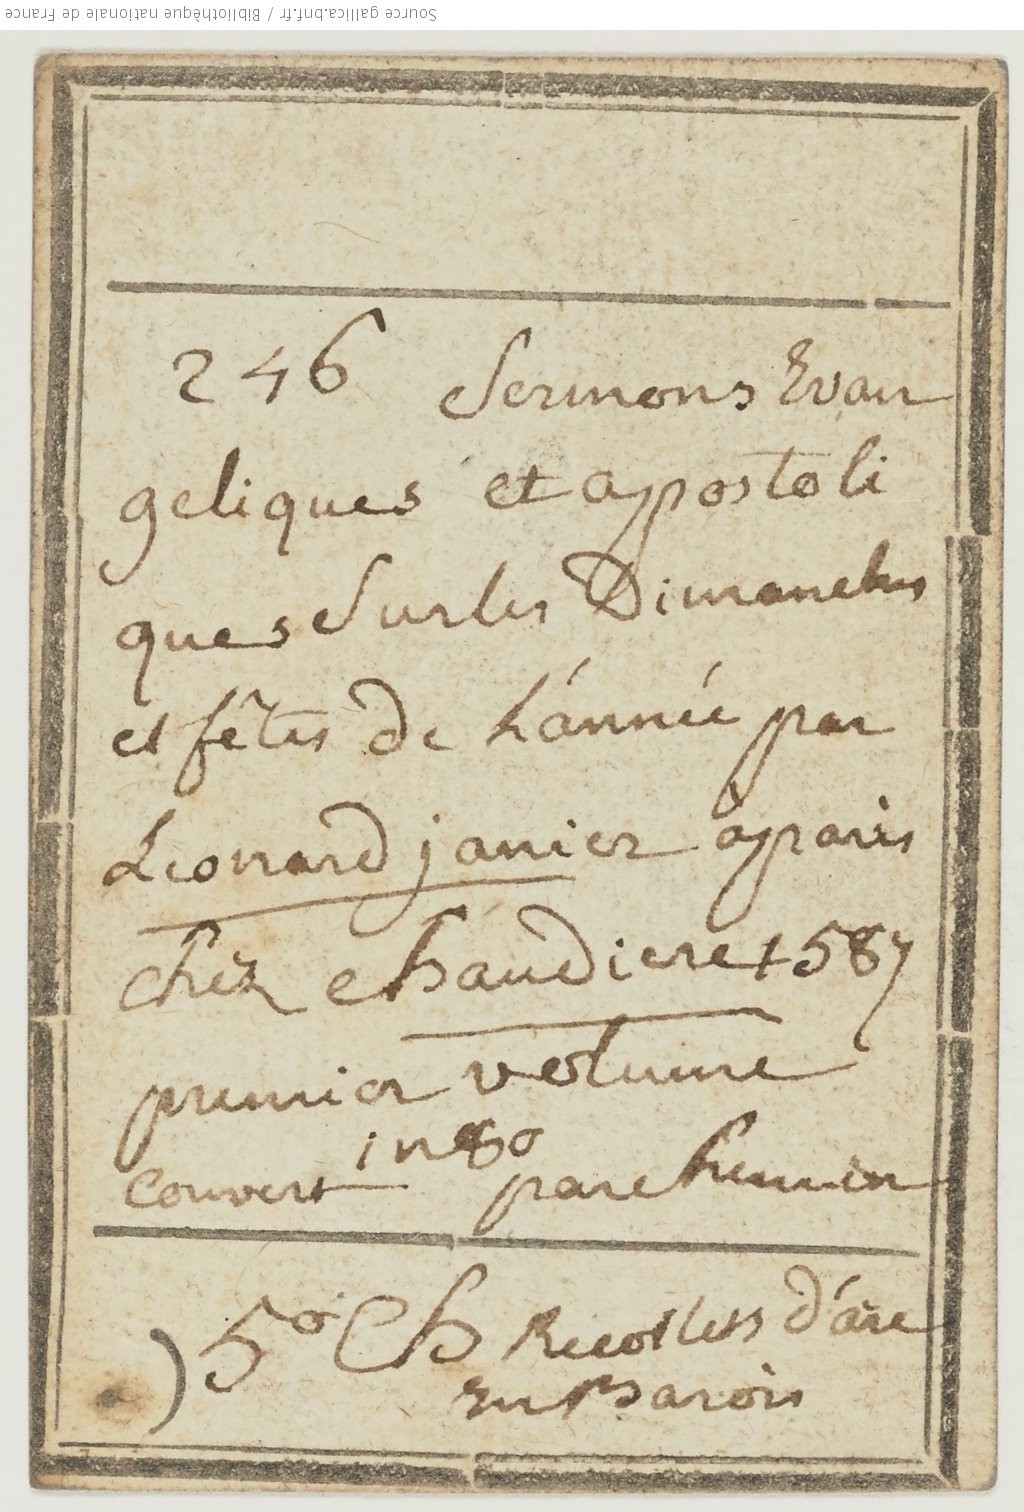 Source gallica.bnf.fr / Bibliothèque nationale de France
246 Sermons Evan
geliques et apostoli
ques Sur les Dimanches
et fêtes de L'année par
Leonard janier à paris
chez chaudiere 1587
premier volume
in 8o
couvert parchemin
5o Ch Recollets d'arc
En Barois